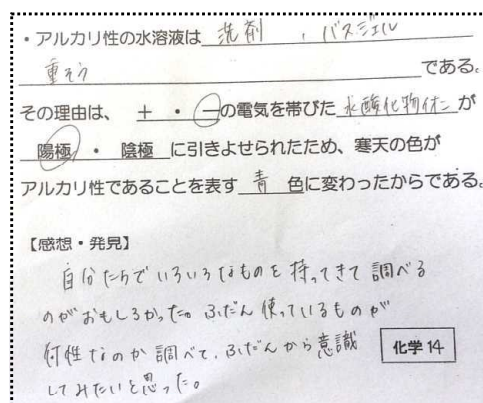 ・アルカリ性の水溶液は 洗剤 , バスジェル
重そう である。
その理由は、 + ・ − の電気を帯びた 水酸化物イオン が
陽極 ・ 陰極 に引きよせられたため、寒天の色が
アルカリ性であることを表す 青 色に変わったからである。
【感想・発見】
自分たちでいろいろなものを持ってきて調べる
のがおもしろかった。ふだん使っているものが
何性なのか調べて、ふだんから意識
してみたいと思った。
化学14